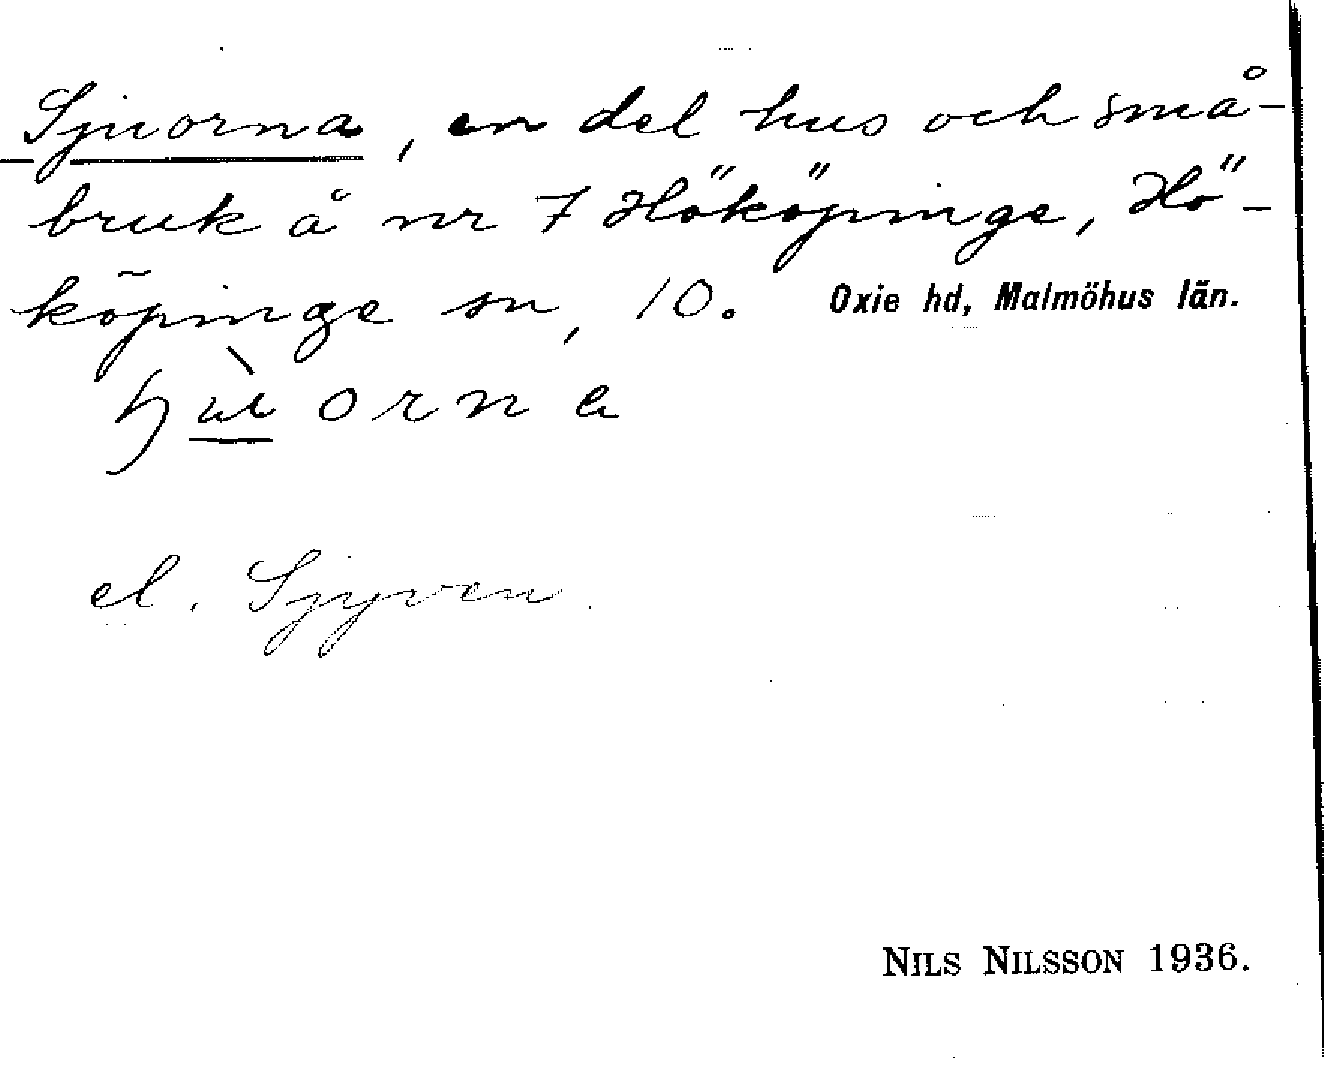 Sjuorna, en del hus och små-
bruk å nr 7 Hököpinge, Hö-
köpinge sn, 10. Oxie hd, Malmöhus län.
el. Sjyven
NILS NILSSON 1936.